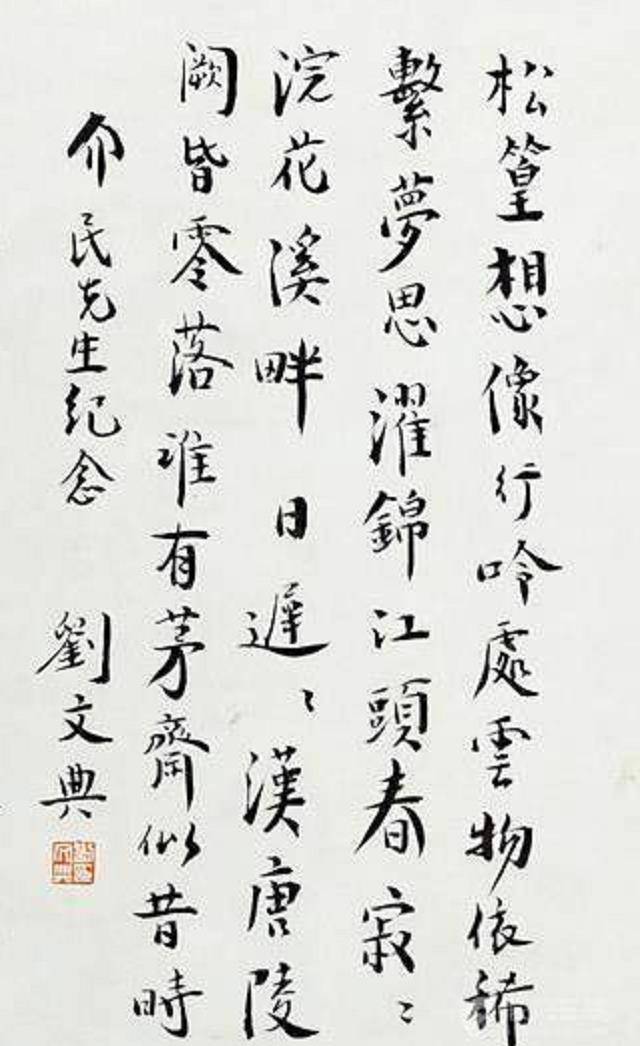 松篁想像行吟處雲物依稀
繫夢思濯錦江頭春寂〻
浣花溪畔日遲〻漢唐陵
闕皆零落唯有茅齋似昔時
介民先生紀念 劉文典